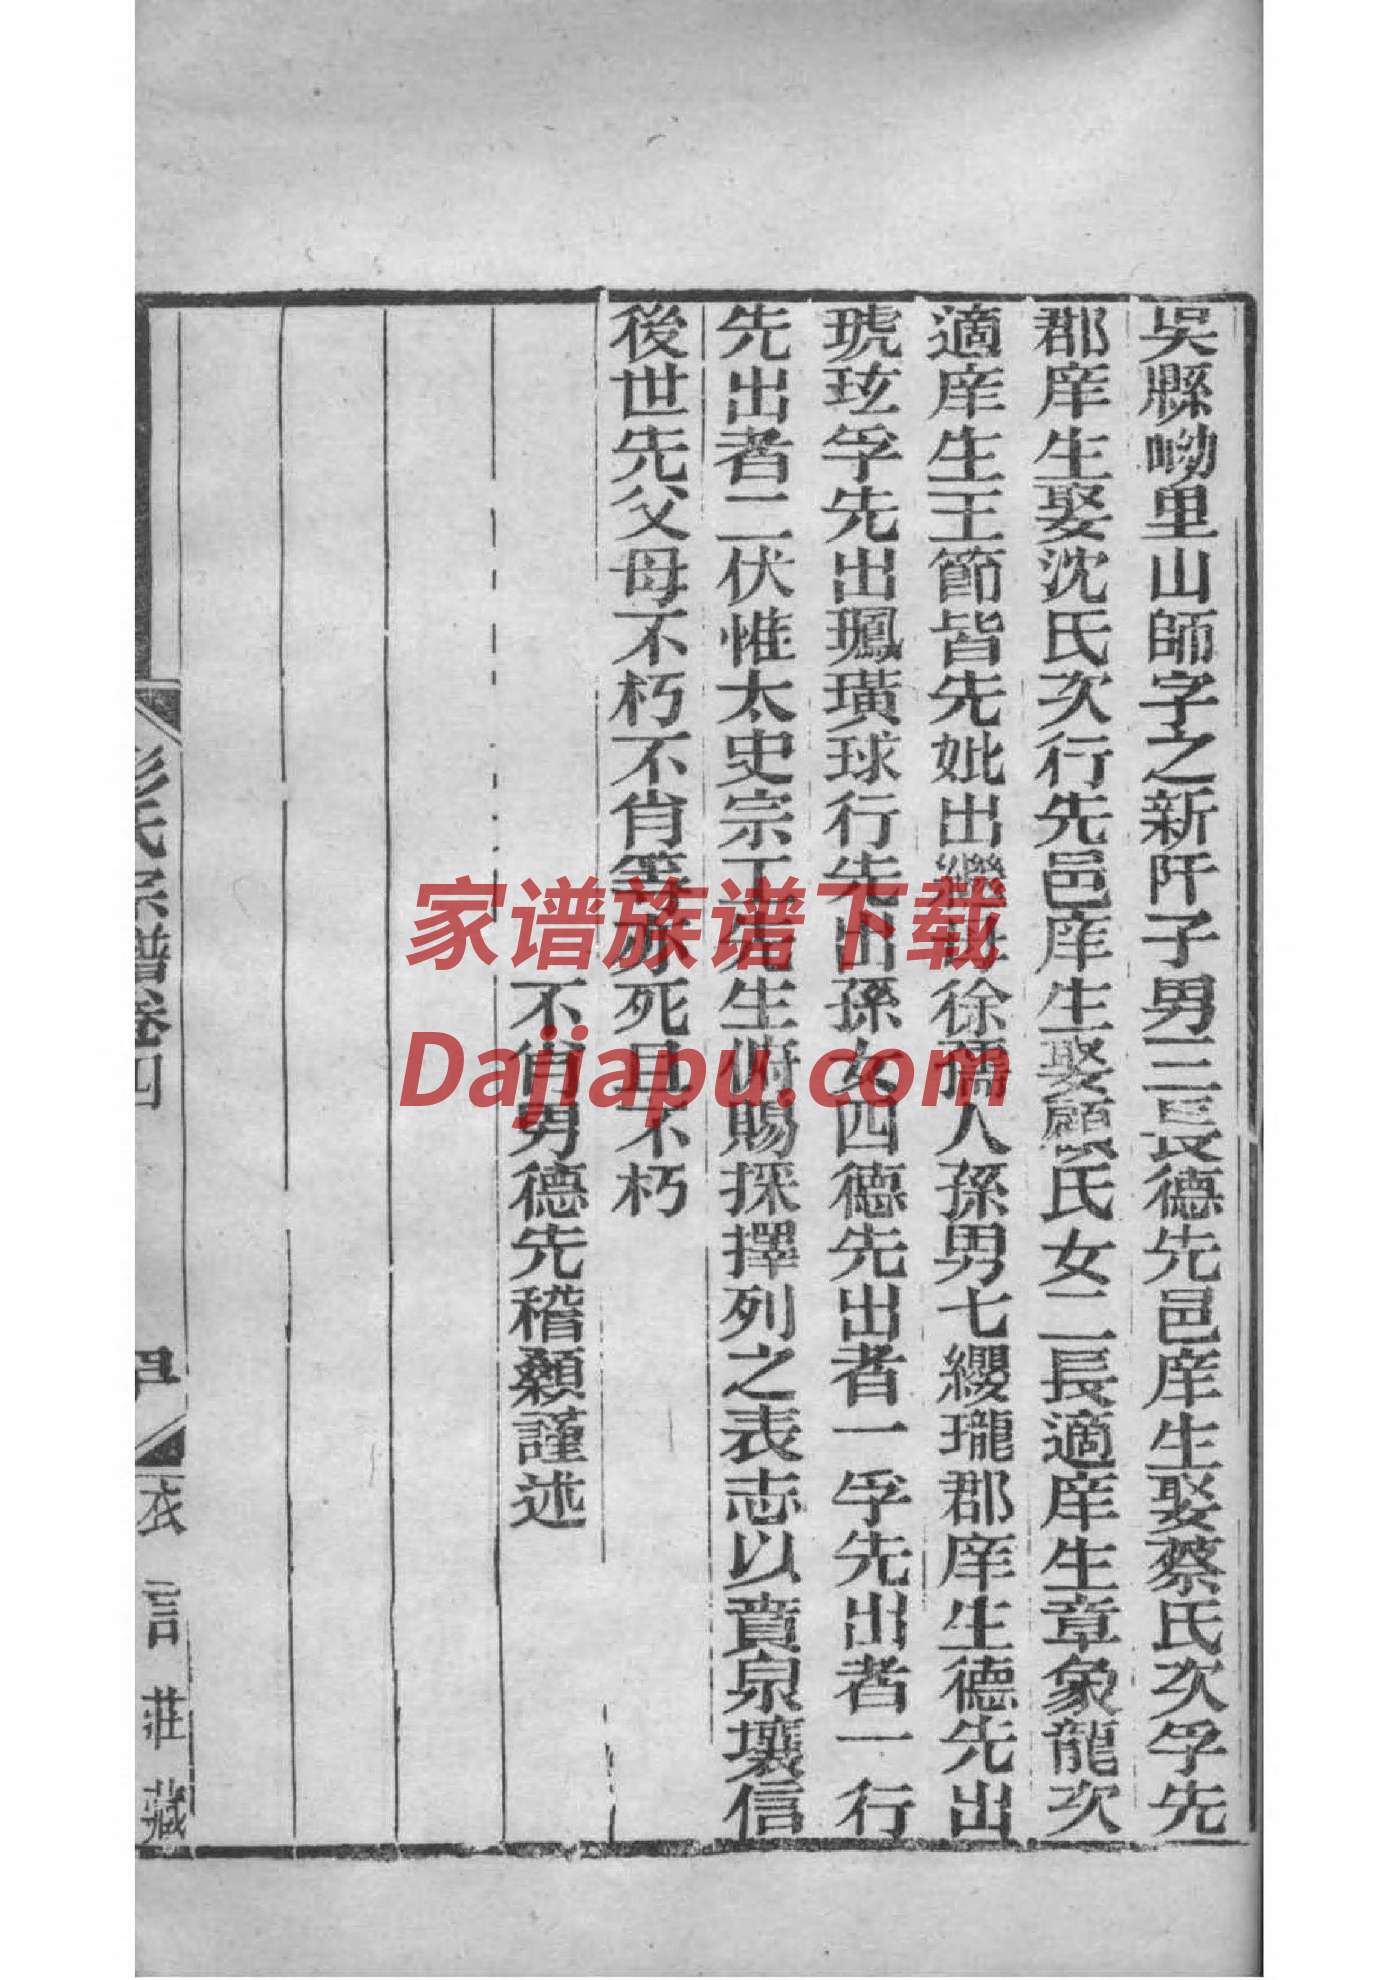 吳縣㘭里山師字之新阡子男三長德先邑庠生娶蔡氏次孚先
郡庠生娶沈氏次行先邑庠生娶顧氏女二長適庠生章象龍次
適庠生王節皆先妣出繼母徐孺人孫男七纓瓏郡庠生德先出
琥玹孚先出瓓璜球行先出孫女四德先出者一孚先出者一行
先出者二伏惟太史宗工先生俯賜採擇列之表志以賁泉壤信
後世先父母不朽不肖等亦死且不朽
不肖男德先稽顙謹述
彭氏宗譜卷四
衣言莊藏
家谱族谱下载
Dajiapu.com